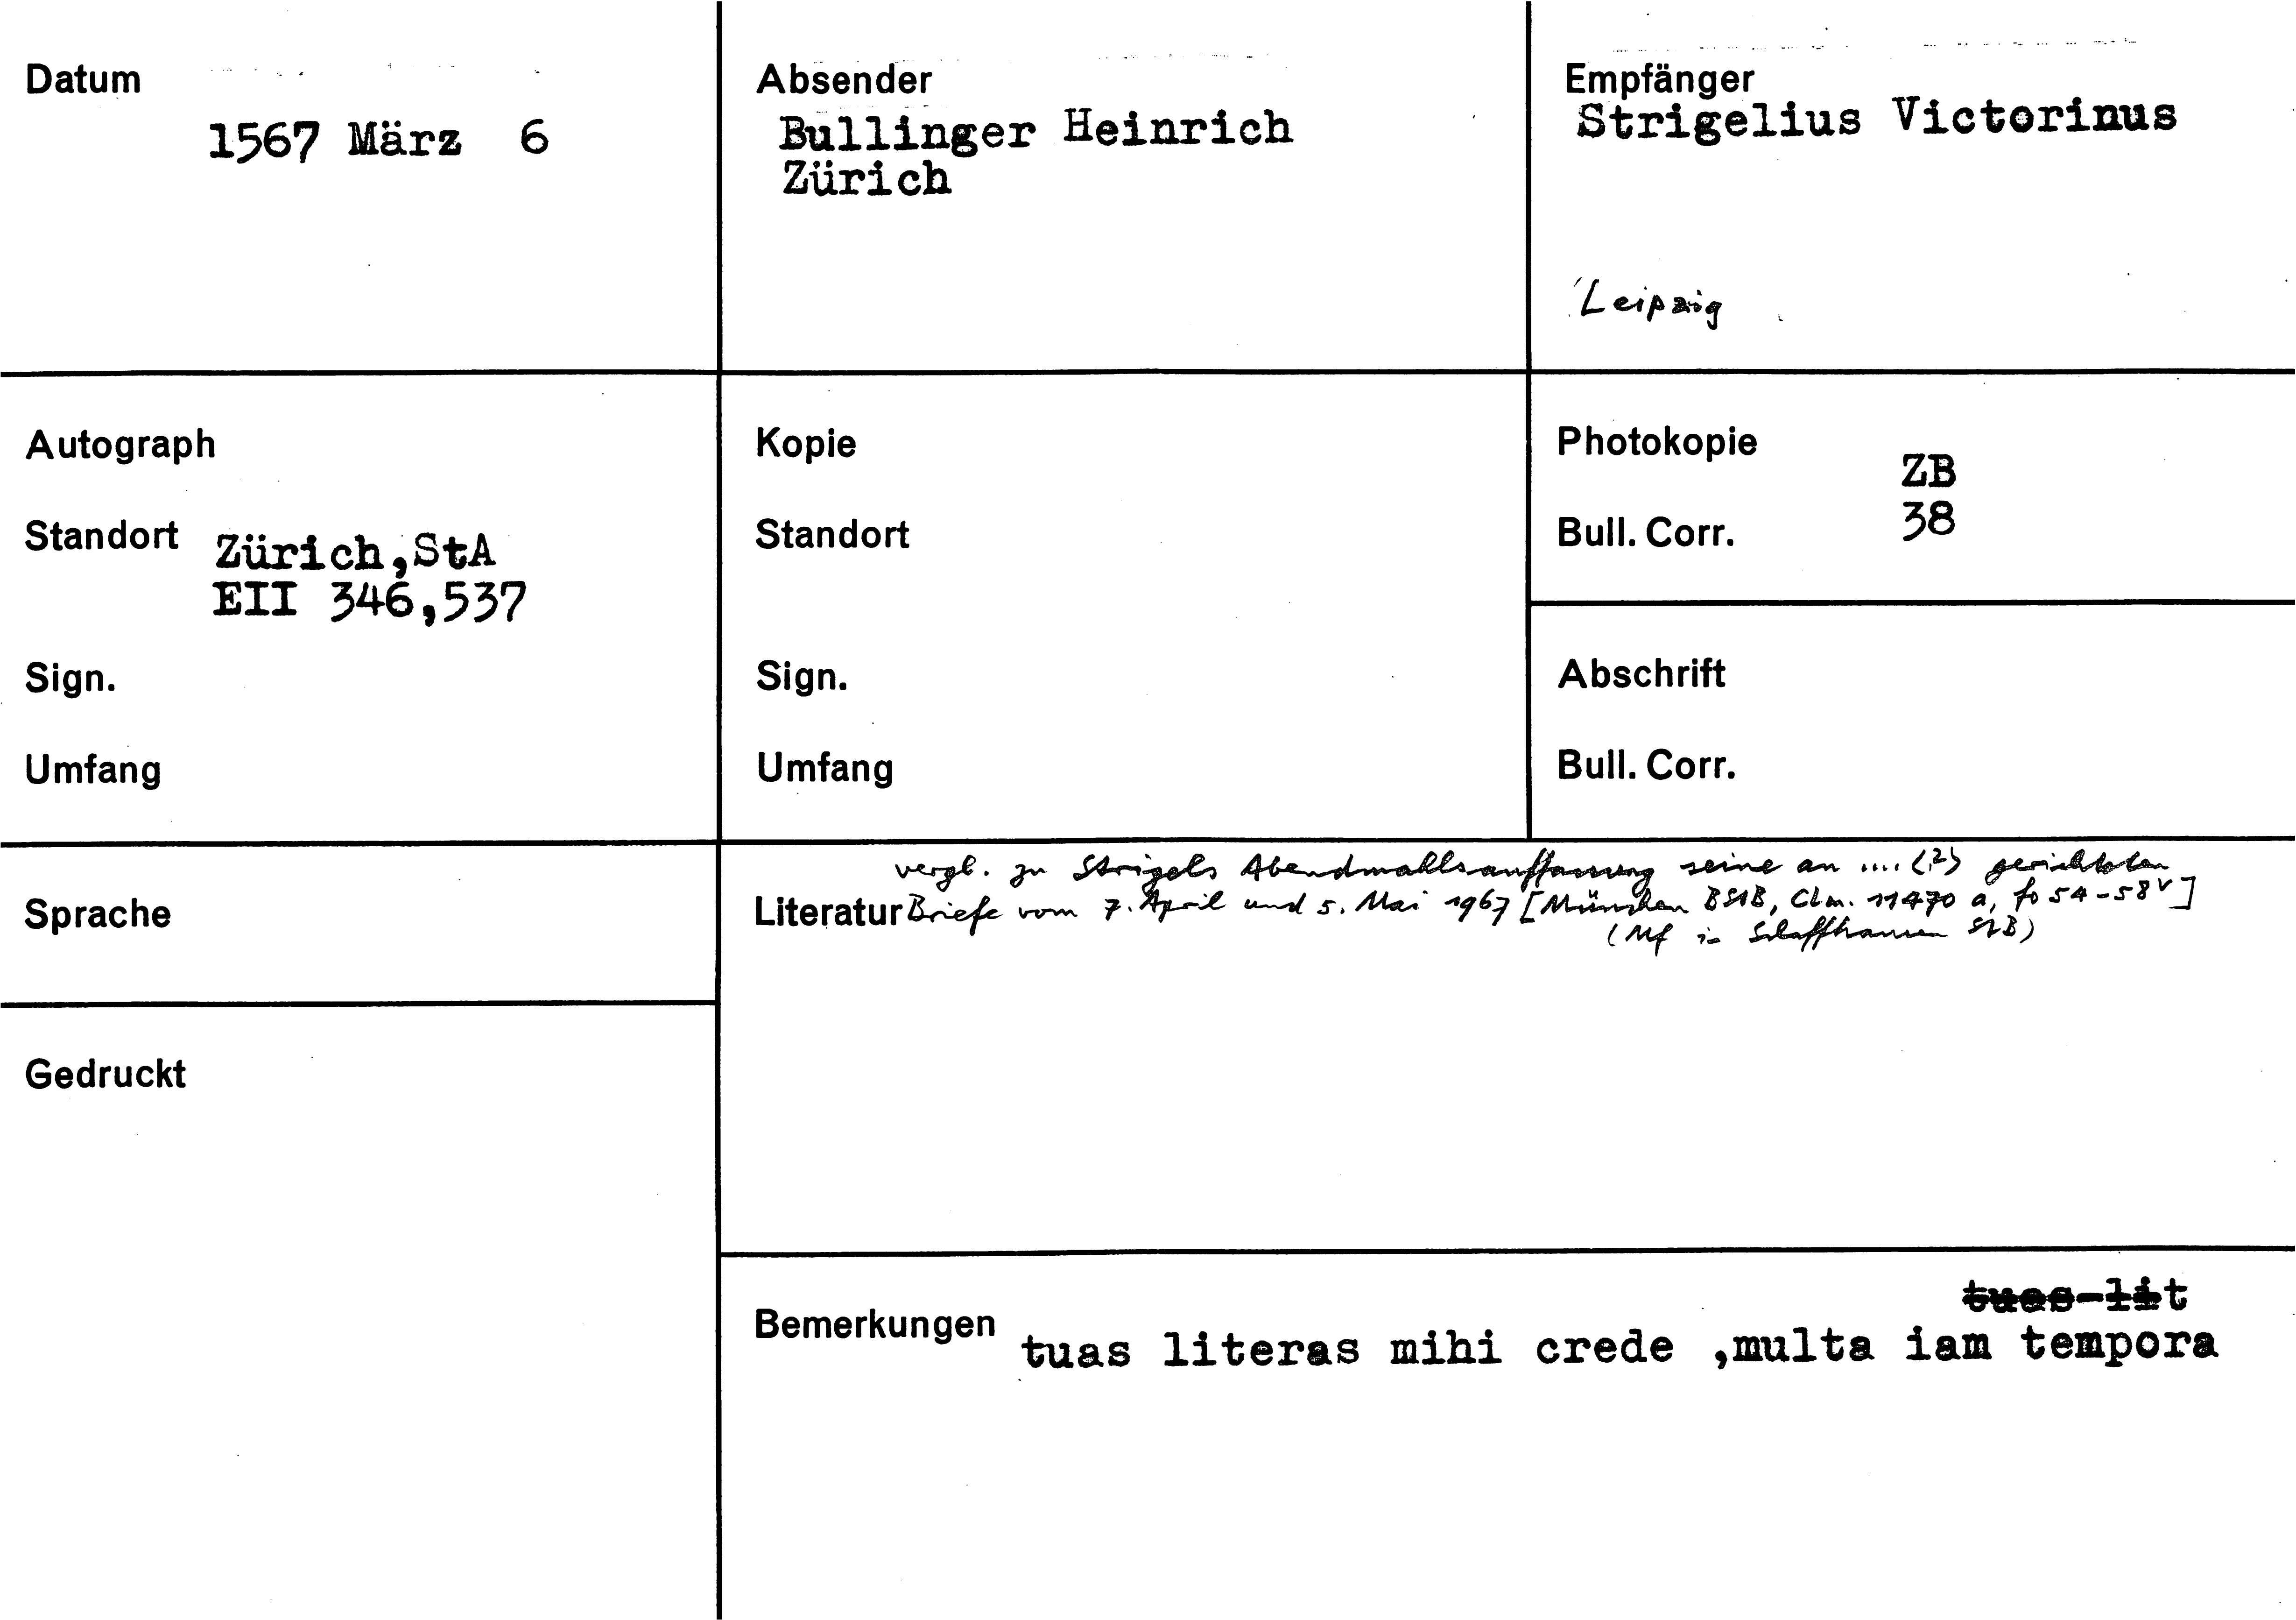 Datum
1567 März 6
Absender
Bullinger Heinrich
Zürich
Empfänger
Strigelius Victorinus
Leipzig
Autograph
Standort Zürich,StA
EII 346,537
Sign.
Umfang
Kopie
Standort
Sign.
Umfang
Photokopie
ZB
Bull. Corr. 38
Abschrift
Bull. Corr.
Sprache
Gedruckt
vergl. zu Strigels Abendmahlsauffassung seine an .... (?) gerichteten
Literatur Briefe vom 7. April und 5. Mai 1967 [München BStB, Clm. 11470 a, fo 54-58v]
(Mf in Schaffhausen StB)
tuas lit
Bemerkungen
tuas literas mihi crede ,multa iam tempora